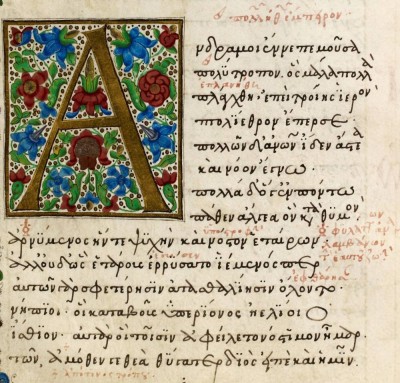 Ἄ
νδρα μοι ἔννεπε μοῦσα
πολύτροπον. ὃς μάλα πολλὰ
πλάγχθη· ἐπεὶ τροίης ἱερὸν
πτολίεθρον ἔπερσε·
πολλῶν δ' ἀνῶν ἴδεν ἄστεα
καὶ νόον ἔγνω·
πολλὰ δ' ὅγ' ἐν πόντω
πάθεν ἄλγεα ὃν κατὰ θυμὸν
ἀρνύμενος ἥν τε ψυχὴν καὶ νόστον ἑταίρων.
ἀλλ' οὐδ' ὣς ἑτάρους ἐρρύσατο ἱέμενός περ
αὐτῶν γὰρ σφετέρησιν ἀτασθαλίησιν ὄλοντο
νήπιοι· οἳ κατὰ βοῦς ὑπερίονος ἠελίοιο
ἤσθιον· αὐτὰρ ὁ τοῖσιν ἀφείλετο νόστιμον ἦμαρ.
τῶν ἁμόθεν γε θεὰ θύγατερ διὸς εἰπὲ καὶ ἡμῖν.